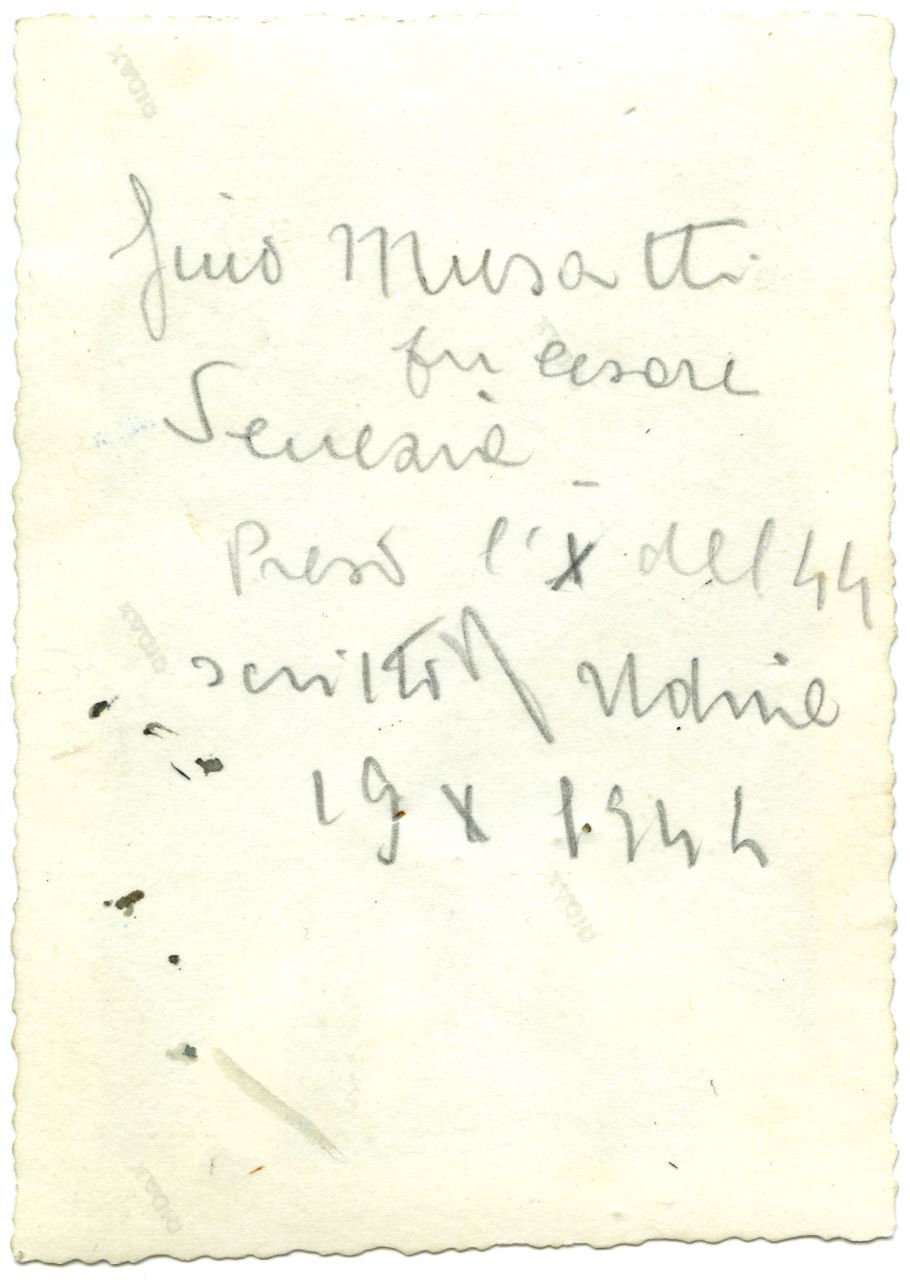 Gino Musatti
fu Cesare
Venezia
Preso l'X del 44
scritto Udine
19 X 1944